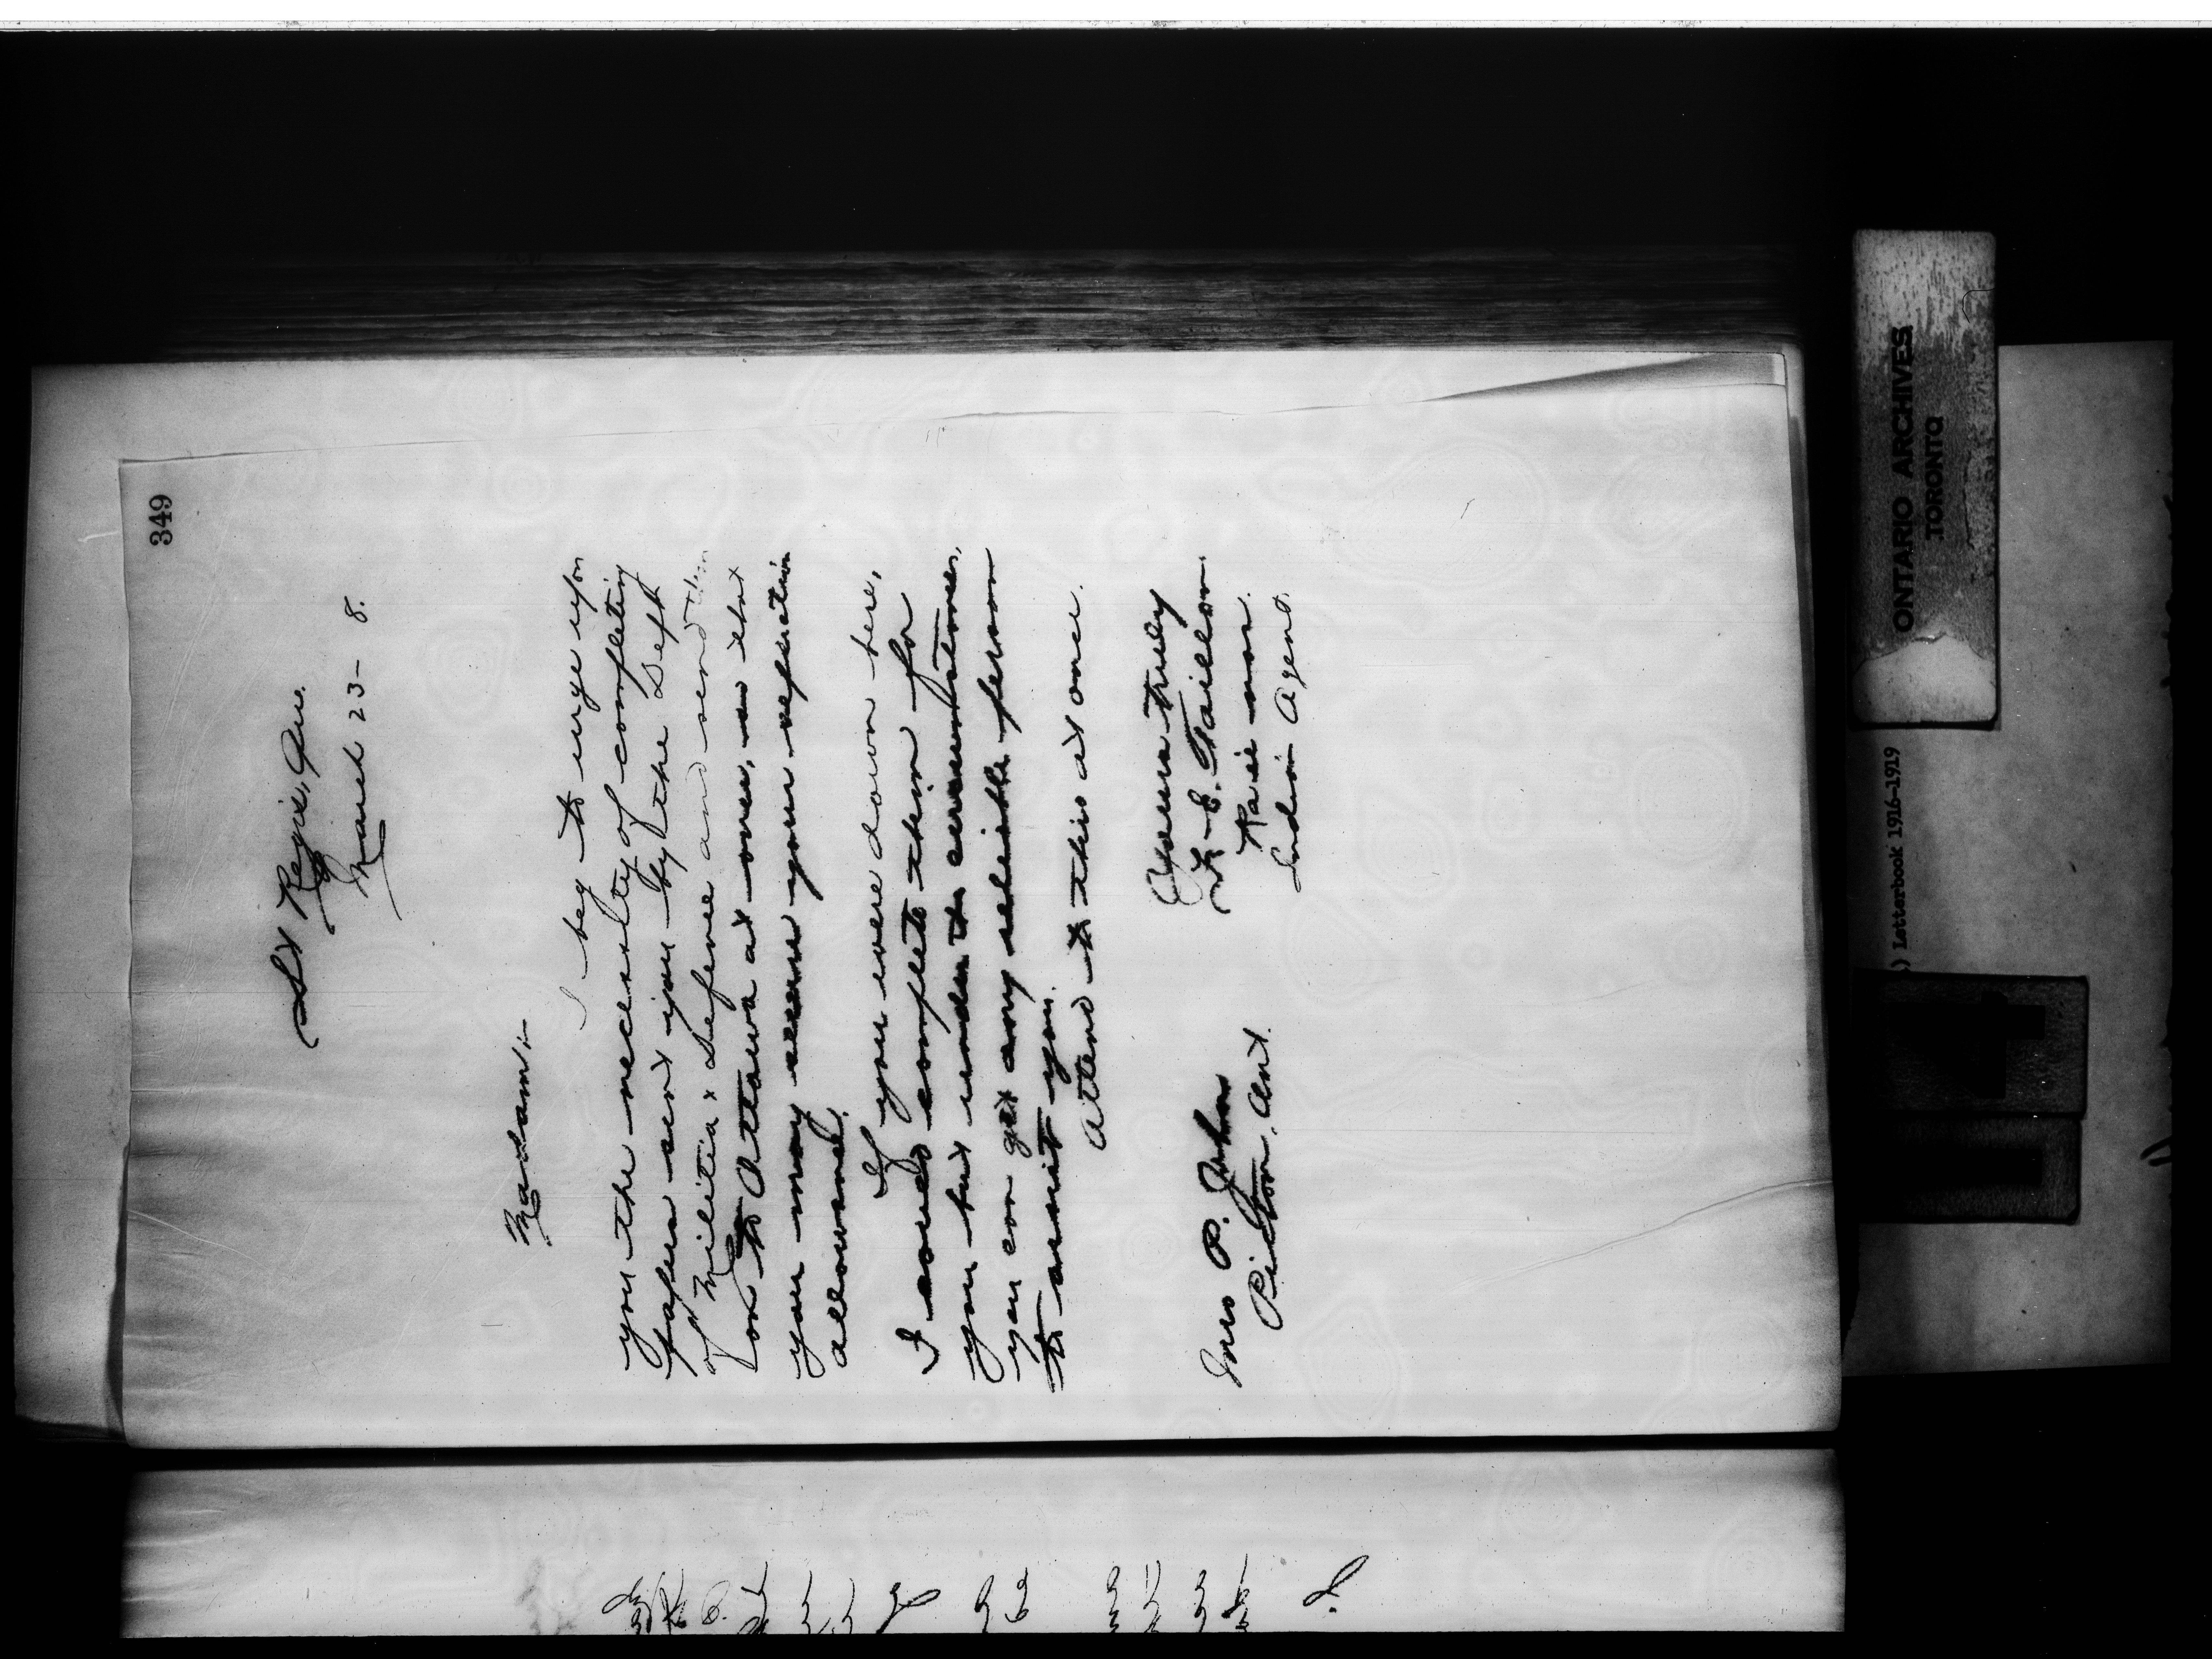 349
St Regis, Que.
March 23 - 8.
Madam:-
I beg to urge upon
you the necessity of completing
papers sent you by the Dept
of Militia & Defence and send them
on to Ottawa at once, so that
you may secure your seperation
allowance.
If you were down here,
I would complete them for
you but under the circumstances,
you can get any reliable person
to assist you.
Attend to this at once.
Yours truly
F. E. Taillon
Indian Agent.
Mrs P. John
Picton, Ont.
ONTARIO ARCHIVES
TORONTO
) Letterbook 1916-1919
4